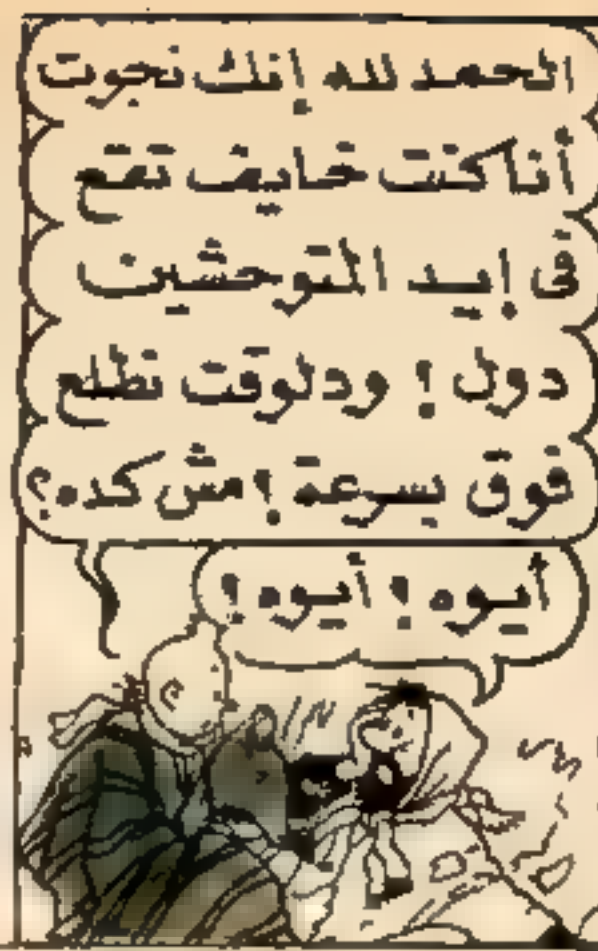 الحمد لله إنك نجوت
أنا كنت خايف تقع
فى إيد المتوحشين
دول ! ودلوقت نطلع
فوق بسرعة ! مش كده؟
أيوه ! أيوه !